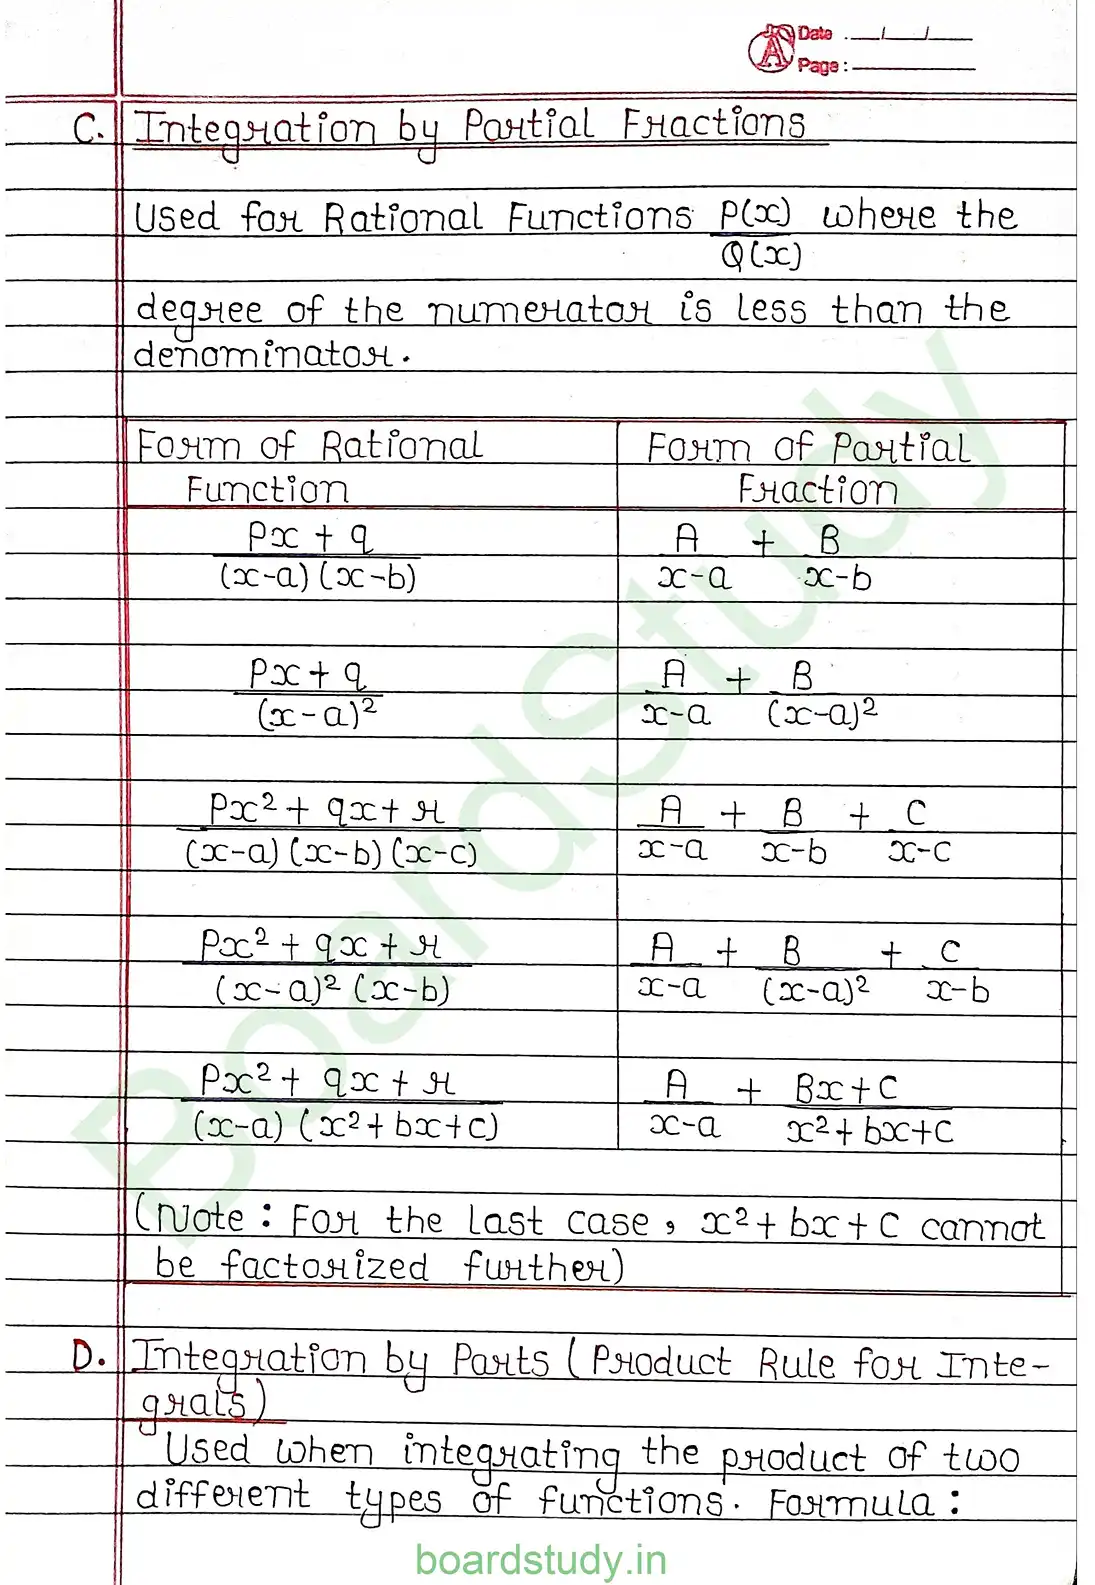 Date : __/__/__
Page :
C. Integration by Partial Fractions
Used for Rational Functions P(x)/Q(x) where the
degree of the numerator is less than the
denominator.
Form of Rational Function | Form of Partial Fraction
(Px + q)/((x-a)(x-b)) | A/(x-a) + B/(x-b)
(Px + q)/(x-a)² | A/(x-a) + B/(x-a)²
(Px² + qx + r)/((x-a)(x-b)(x-c)) | A/(x-a) + B/(x-b) + C/(x-c)
(Px² + qx + r)/((x-a)²(x-b)) | A/(x-a) + B/(x-a)² + C/(x-b)
(Px² + qx + r)/((x-a)(x²+bx+c)) | A/(x-a) + (Bx+C)/(x²+bx+c)
(Note : For the last case, x² + bx + c cannot
be factorized further)
D. Integration by Parts (Product Rule for Inte-
grals)
Used when integrating the product of two
different types of functions. Formula :
BoardStudy
boardstudy.in